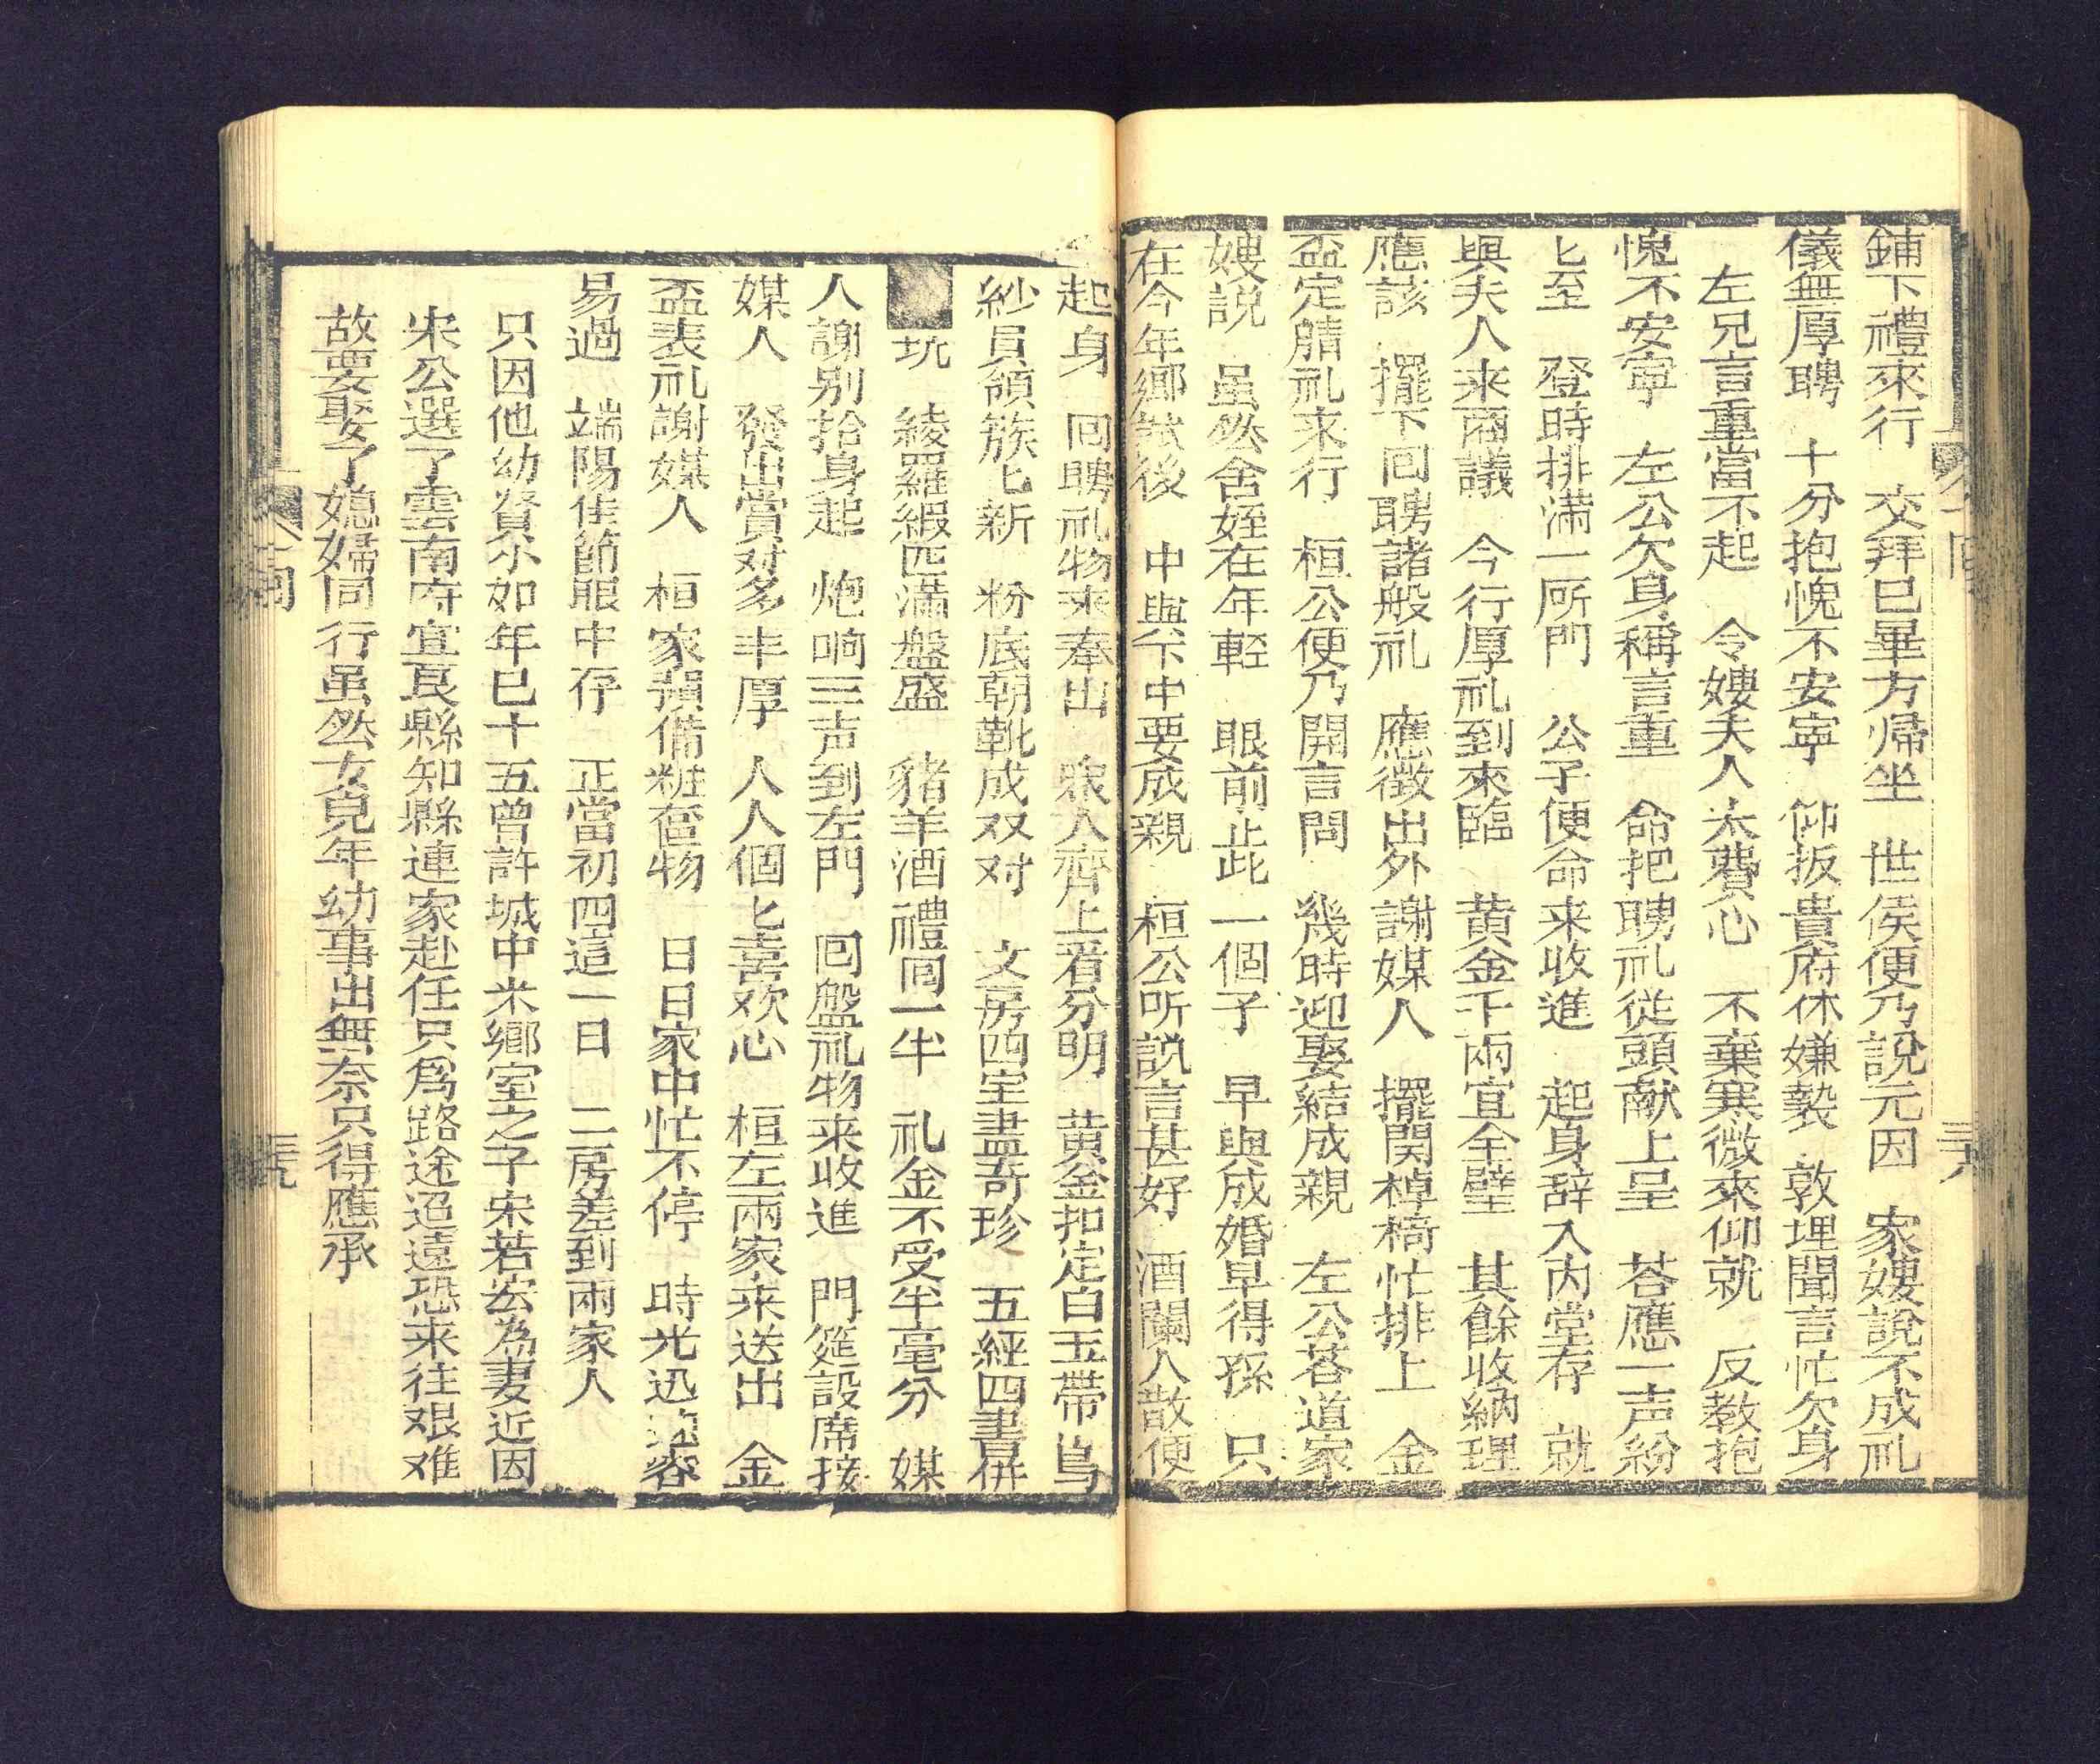 鋪下禮來行　交拜已畢方歸坐　世侯便乃說元因　家嫂說不成礼
儀無厚聘　十分抱愧不安寧　仰扳貴府休嫌褻　敦埋聞言忙欠身
左兄言重當不起　令嫂夫人太費心　不棄寒微來仰就　反教抱
愧不安寧　左公欠身稱言重　命把聘礼從頭献上呈　荅應一声紛
匕至　登時排满一所門　公子便命来收進　起身辞入内堂存　就
與夫人来兩議　今行厚礼到來臨　黄金千兩宜全璧　其餘收納理
應該　擺下回聘諸般礼　應徴出外謝媒人　擺開棹椅忙排上　金
盃定睛礼来行　桓公便乃開言問　幾時迎娶結成親　左公荅道家
嫂說　虽然舍姪在年輕　眼前止此一個子　早與成婚早得孫　只
在今年鄉試後　中與不中要成親　桓公听説言甚好　酒闌人散便
八回
三八
起身　回聘礼物来奉出　衆人齊上看分明　黄金扣定白玉帶　烏
紗員領簇匕新　粉底朝靴成双对　文房四宝盡奇珍　五經四書併
玩　綾羅緞匹滿盤盛　豬羊酒禮同一半　礼金不受半毫分　媒
人謝别抬身起　炮响三声到左門　回盤礼物来收進　門筵設席接
媒人　發出賞对多丰厚　人人個匕喜欢心　桓左兩家来送出　金
盃表礼謝媒人　桓家預備粧奩物　日日家中忙不停　時光迅速容
易過　端陽佳節眼中存　正當初四這一日　二房差到兩家人
只因他幼資小如年已十五曾許城中米鄉室之子宋若宏為妻近因
宋公選了雲南府宜良縣知縣連家赴任只爲路途迢遠恐来往艰难
故要娶了媳婦同行虽然女兒年幼事出無奈只得應承
八回
三九